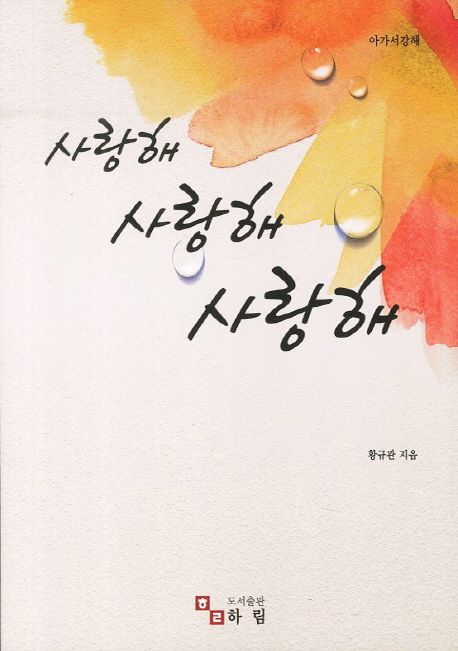 아가서강해
사랑해
사랑해
사랑해
황규관 지음
ㅎㄹ
도서출판
하림